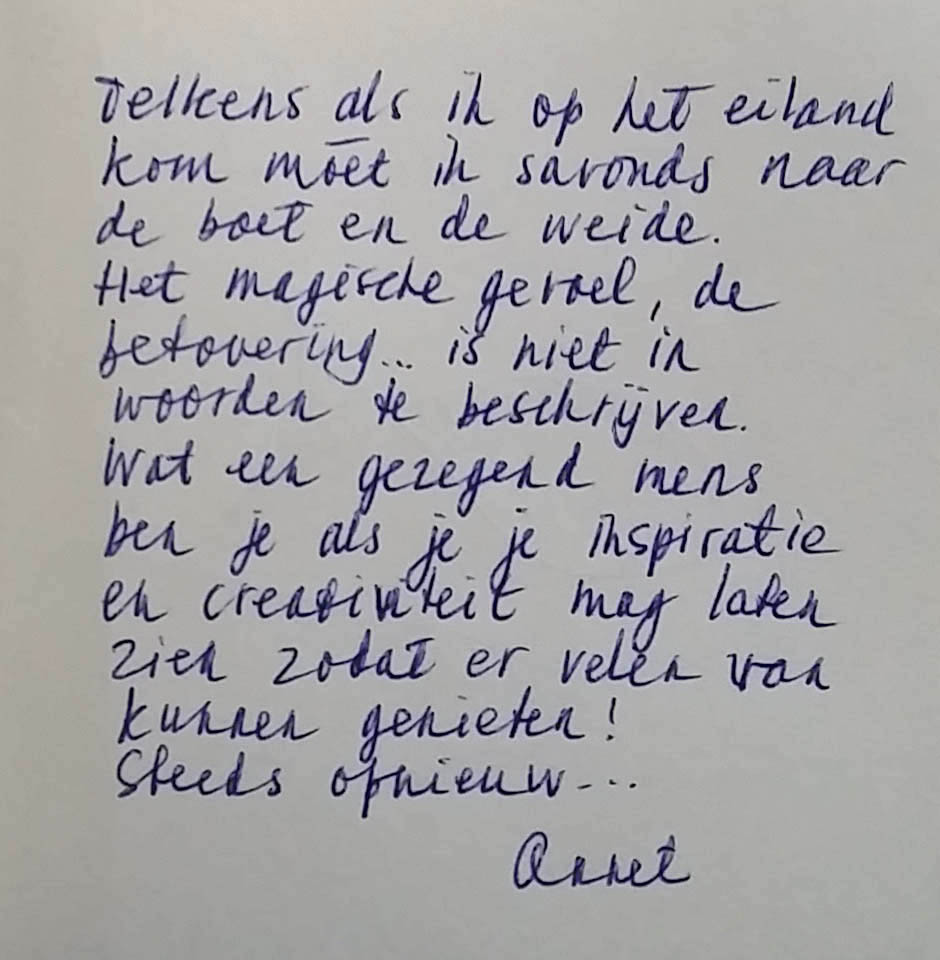 Telkens als ik op het eiland
kom móet ik savonds naar
de boet en de weide.
Het magische gevoel, de
betovering... is niet in
woorden te beschrijven.
Wat een gezegend mens
ben je als je je inspiratie
en creativiteit mag laten
zien zodat er velen van
kunnen genieten!
Steeds opnieuw...
Annet